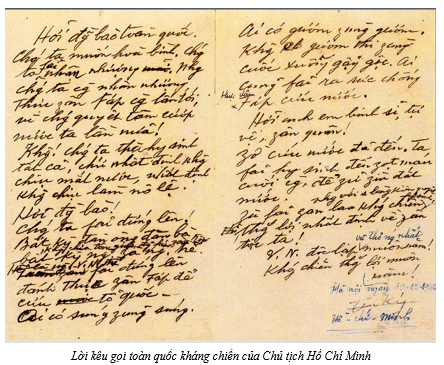 Hỡi đồng bào toàn quốc.
Chúng ta muốn hoà bình, chúng
ta nhân nhượng. Nhưng
chúng ta càng nhân nhượng
thực zân Fáp càng lấn tới,
vì chúng quyết tâm cướp
nước ta lần nữa!
Không! chúng ta thà hy sinh
tất cả, chứ nhất định không
chịu mất nước, nhất định
không chịu làm nô lệ.
Hỡi đồng bào!
Chúng ta fải đứng lên!
fải đứng lên
đánh thực zân Fáp để
cứu tổ quốc -
Ai có súng zùng súng.
Ai có gươm zùng gươm,
Không có gươm thì zùng
cuốc xuổng gậy gộc. Ai
cũng fải ra sức chống
Fáp cứu nước.
Hỡi anh em binh sĩ, tự
vệ, zân quân!
Zờ cứu nước đã đến. Ta
fải hy sinh đến zọt máu
cuối cùng, để zữ zìn đất
nước.
thắng lợi nhất định về zân
tộc ta!
V. N. độc lập và thống nhất muôn năm!
Kháng chiến thắng lợi muôn
năm!
Hà nội ngày
Hồ - chí - Minh
Lời kêu gọi toàn quốc kháng chiến của Chủ tịch Hồ Chí Minh